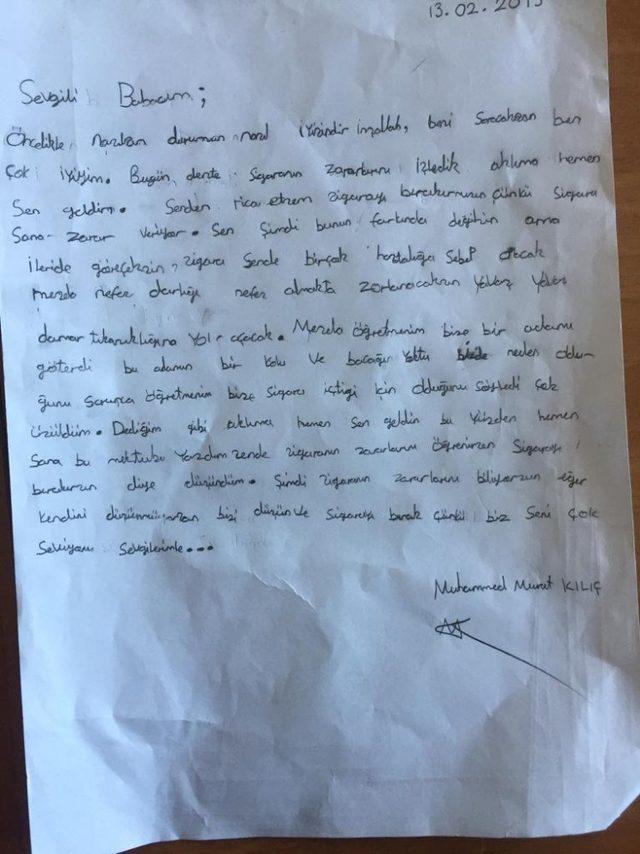 13.02.2015
Sevgili Babacım;
Öncelikle nasılsın durumun nasıl iyisindir inşallah, beni soracaksan ben
çok iyiyim. Bugün derste sigaranın zararlarını izledik aklıma hemen
sen geldin. Senden rica etsem sigarayı bırakırmısın çünkü sigara
sana zarar veriyor. Sen şimdi bunun farkında değilsin ama
ileride göreceksin, sigara sende birçok hastalığa sebep olacak
mesela nefes darlığı nefes almakta zorlanacaksın yavaş yavaş
damar tıkanıklığına yol açacak. Mesela öğretmenim bize bir adamı
gösterdi bu adamın bir kolu ve bacağı yoktu neden oldu-
ğunu sorunca öğretmenim bize sigara içtiği için olduğunu söyledi çok
üzüldüm. Dediğim gibi aklıma hemen sen geldin bu yüzden hemen
sana bu mektubu yazdım sende sigaranın zararlarını öğrenirsen sigarayı
bırakırsın diye düşündüm. Şimdi sigaranın zararlarını biliyorsun eğer
kendini düşünmüyorsan bizi düşün ve sigarayı bırak çünkü biz seni çok
seviyoruz sevgilerimle...
Muhammed Murat KILIÇ